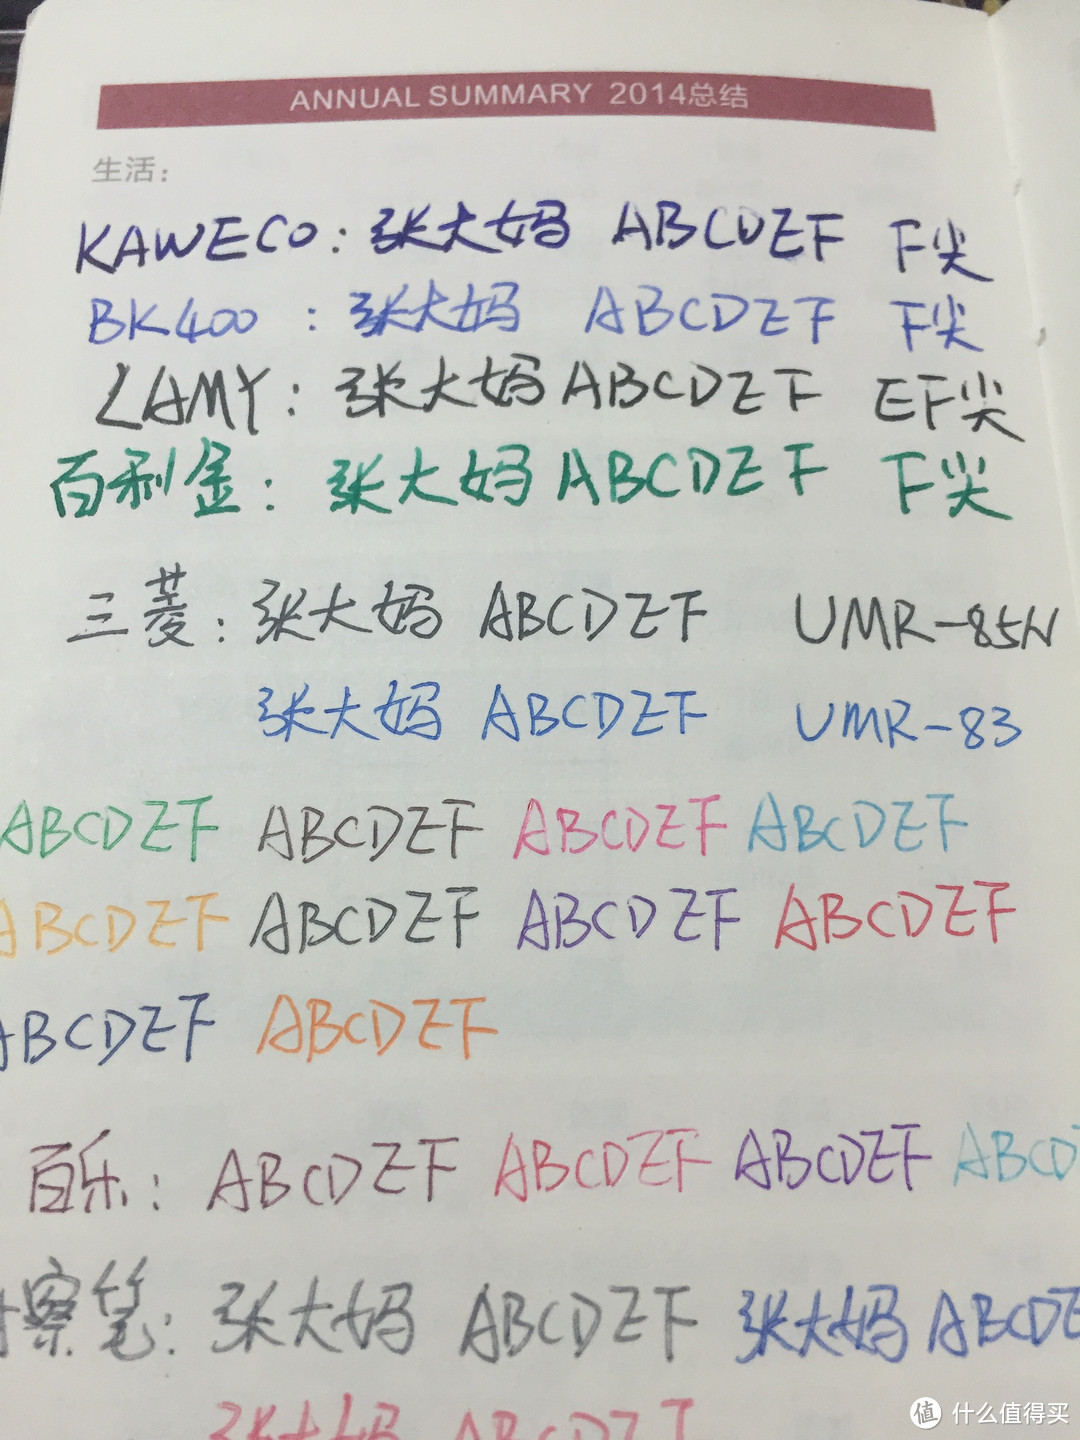 ANNUAL SUMMARY 2014总结
生活：
KAWECO：张大妈 ABCDEF F尖
BK400：张大妈 ABCDEF F尖
LAMY：张大妈 ABCDEF EF尖
百利金：张大妈 ABCDEF F尖
三菱：张大妈 ABCDEF UMR-85N
张大妈 ABCDEF UMR-83
ABCDEF ABCDEF ABCDEF ABCDEF
ABCDEF ABCDEF ABCDEF ABCDEF
ABCDEF ABCDEF
百乐：ABCDEF ABCDEF ABCDEF ABCD
擦笔：张大妈 ABCDEF 张大妈 ABCDE
张大妈 ABCDEF
值 什么值得买